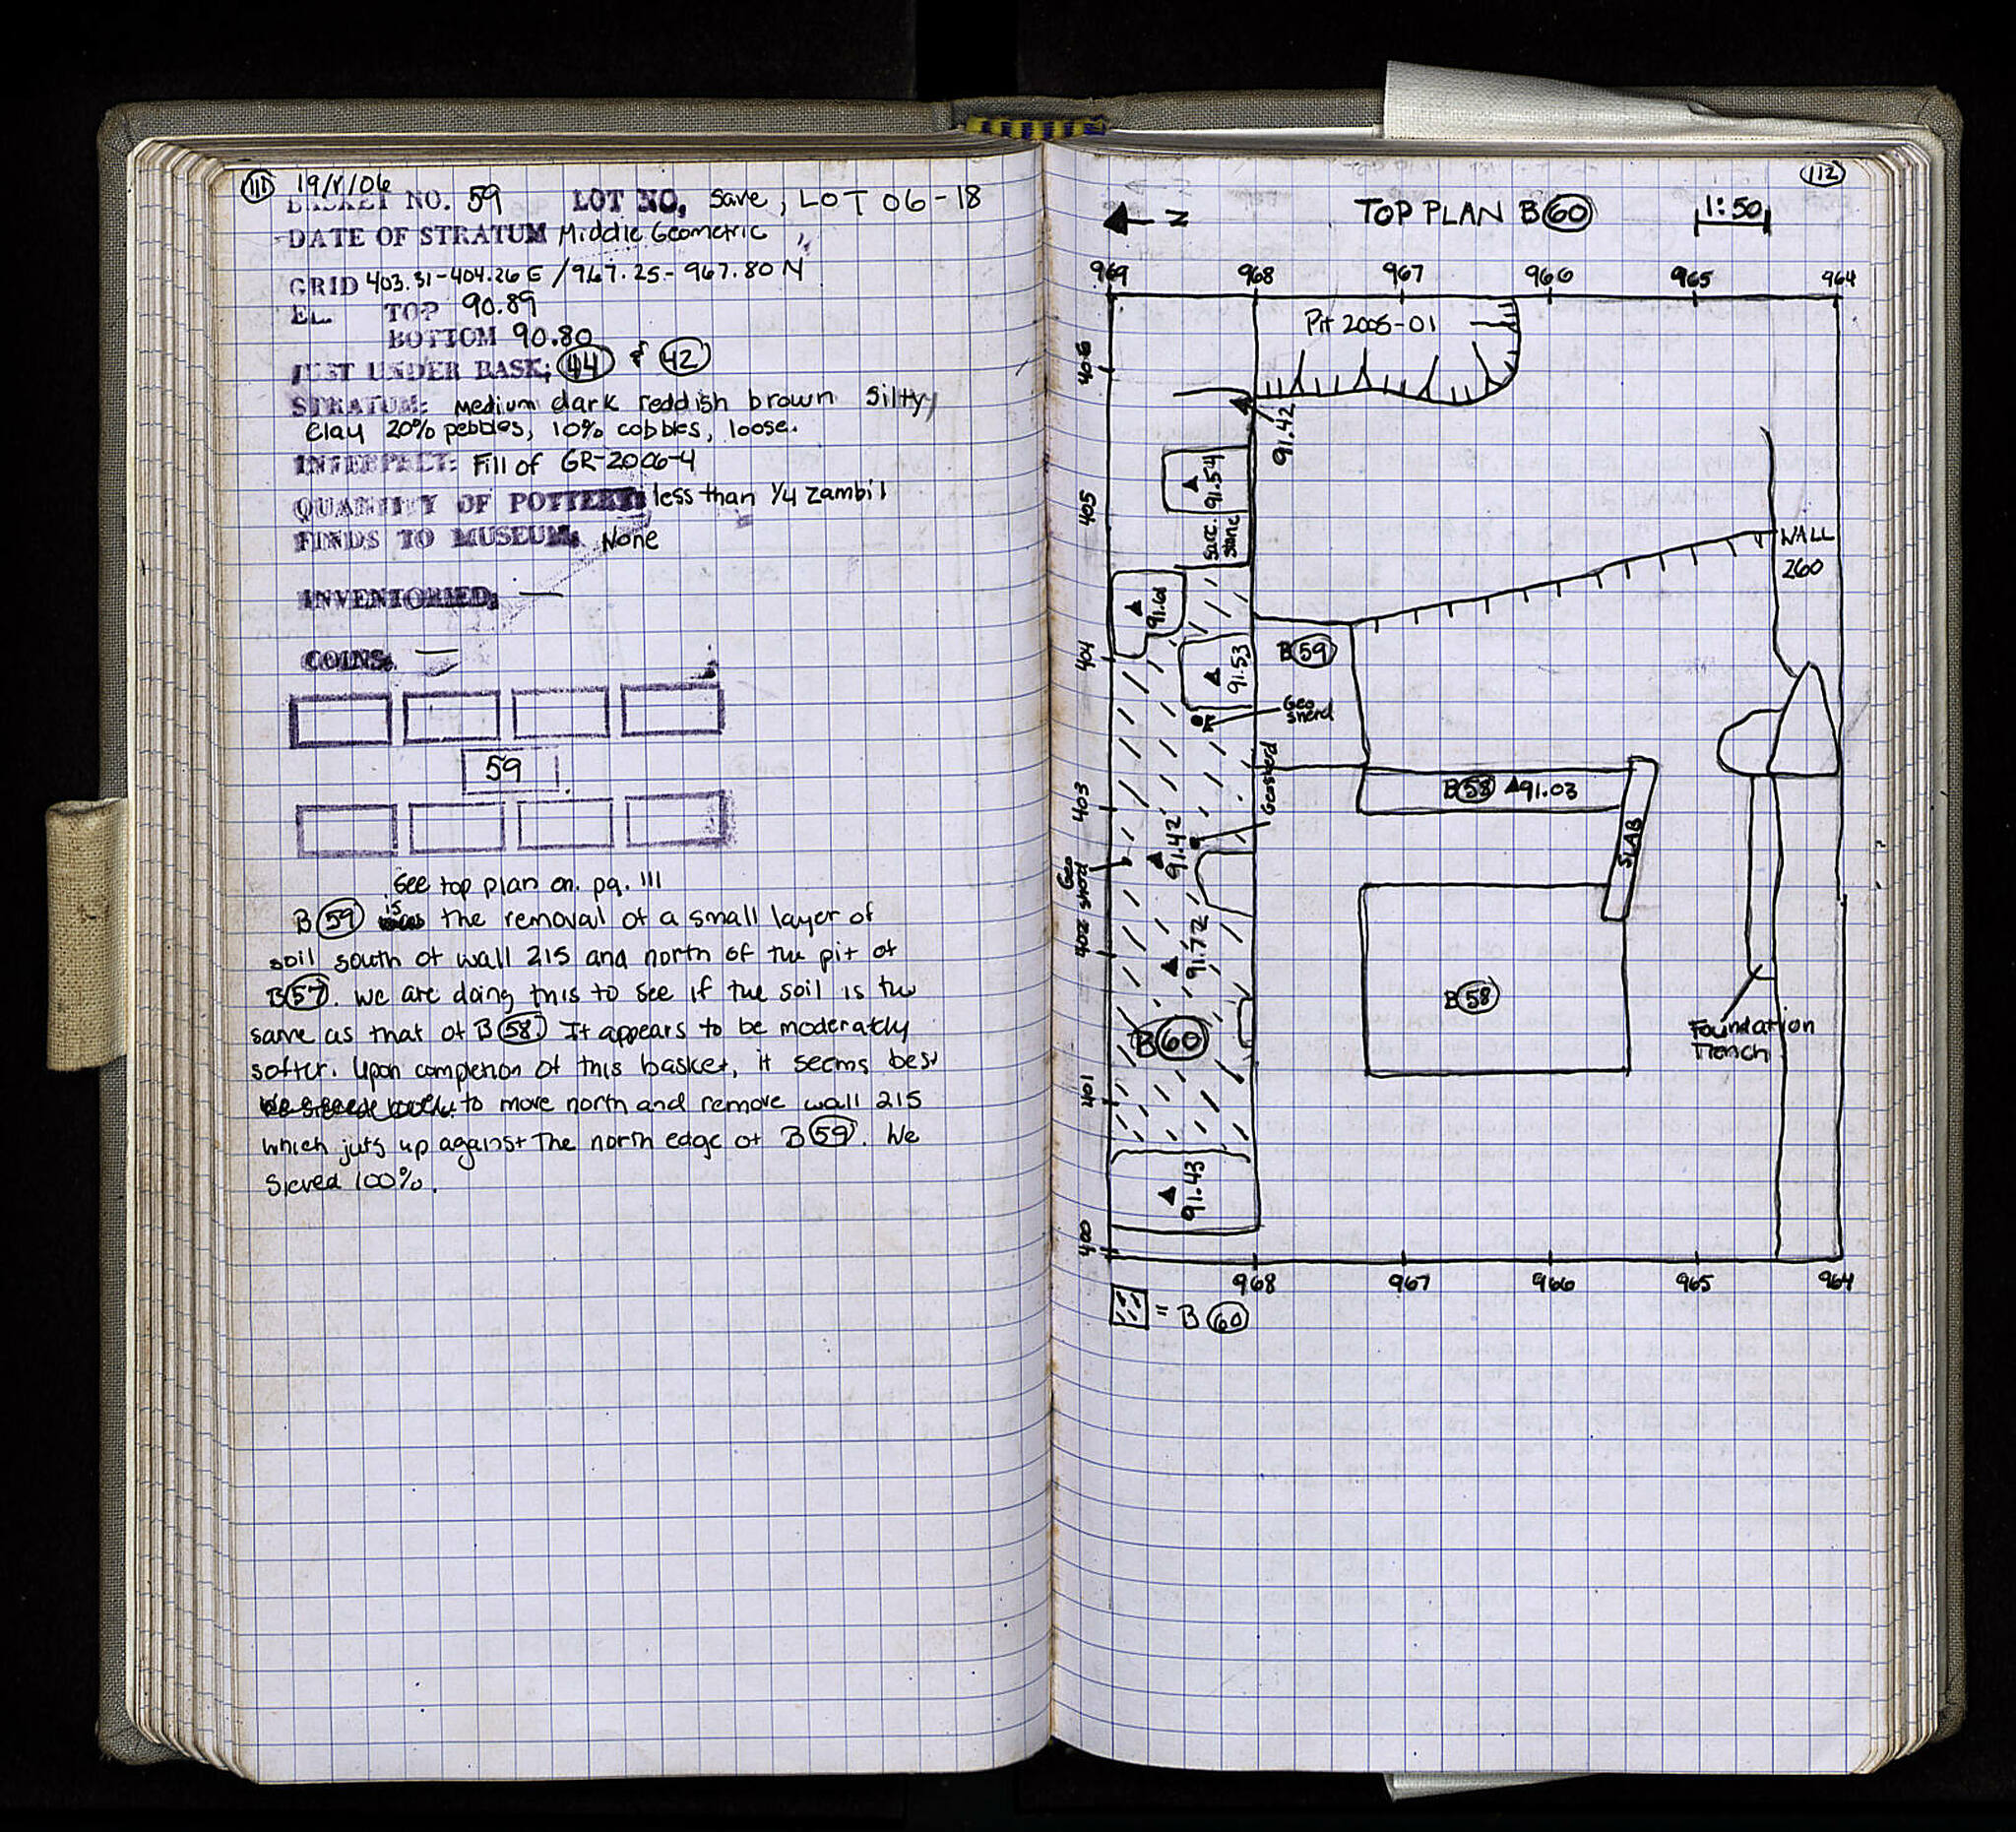 111 19/V/06
BASKET NO. 59 LOT NO. Save, LOT 06-18
DATE OF STRATUM Middle Geometric,
GRID 403.31-404.26 E / 967.25-967.80 N
EL. TOP 90.89
BOTTOM 90.80
JUST UNDER BASK: 44 & 42
STRATUM: Medium dark reddish brown Silty
Clay 20% pebbles, 10% cobbles, loose.
INTERPRET: Fill of GR-2006-4
QUANTITY OF POTTERY: less than 1/4 zambil
FINDS TO MUSEUM: None
INVENTORIED: —
COINS: —
59
See top plan on. pg. 111
B 59 is the removal of a small layer of
soil south of wall 215 and north of the pit of
B 57. We are doing this to see if the soil is the
same as that of B 58 It appears to be moderatly
softer. Upon completion of this basket, it seems best
to move north and remove wall 215
which juts up against the north edge of B 59. We
Sieved 100%.
112
N TOP PLAN B 60 1:50
969 968 967 966 965 964
Pit 2005-01
406
91.42
91.54
405
Sarc.
Stone
WALL
260
91.61
404
91.53
B 59
Geo
Sherd
Geo sherd
403
B 58 91.03
91.42
SLAB
Geo
Sherd
402
91.72
B 58
B 60
Foundation
Trench
401
91.43
400
968 967 966 965 964
= B 60